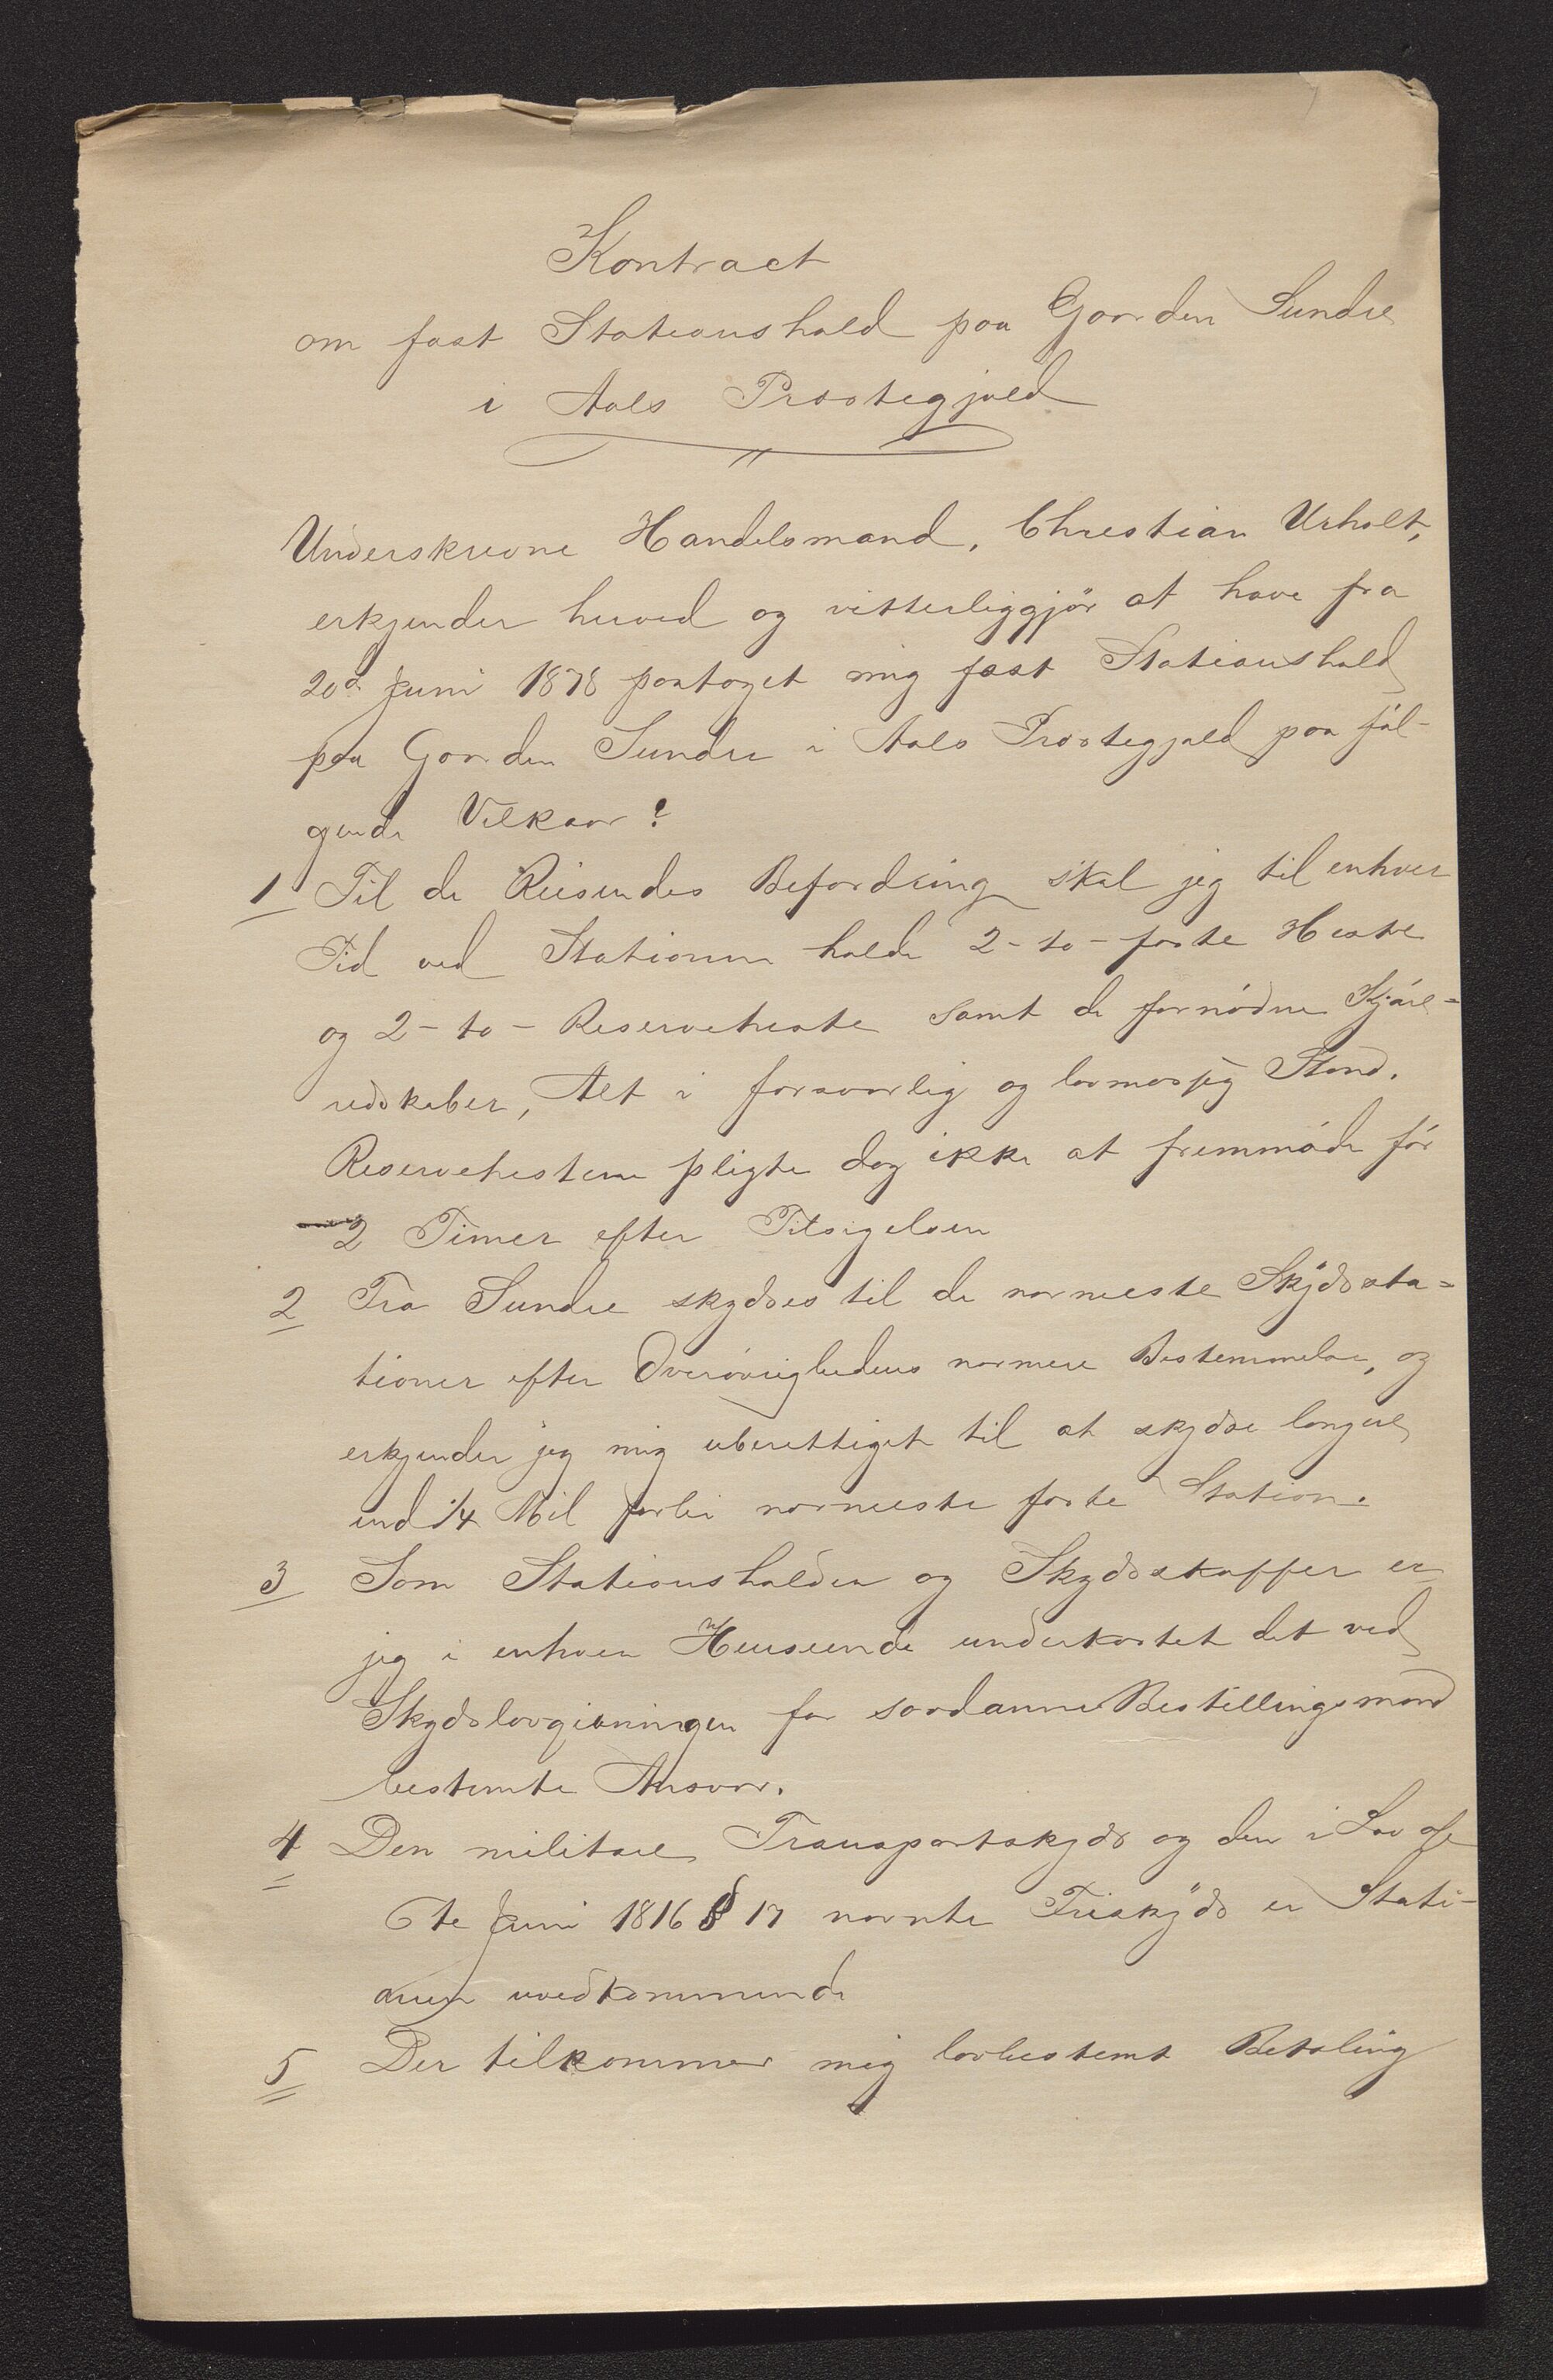 Kontract
om fast Stationshald paa Gaarden Sundre
i Aals Præstegjæld
Underskrevne Handelsmand, Christian Urholt,
erkjender herved og vitterliggjör at have fra
20de Juni 1878 paataget mig fast Stationshald
paa Gaarden Sundre i Aals Præstegjæld paa föl-
gende Vilkaar:
1 Til de Reisendes Befordring skal jeg til enhver
Tid ved Stationen holde 2 - to - faste Heste
og 2 - to - Reserveheste samt de fornödne Kjöre-
redskaber, Alt i forsvarlig og lovmæssig Stand.
Reservehestene pligte dog ikke at fremmöde för
2 Timer efter Tilsigelsen
2 Fra Sundre skydses til de nærmeste Skydssta-
tioner efter Overövrighedens nærmere Bestemmelse, og
erkjender jeg mig uberettiget til at skydse længere
end 1/4 Mil forbi nærmeste faste Station.
3 Som Stationsholder og Skydsskaffer er
jeg i enhver Henseende underkastet det ved
Skydslovgivningen for saadanne Bestillingsmænd
bestemte Ansvar.
4 Den militære Transportskyds og den i Lov af
6te Juni 1816 § 17 nævnte Friskyds er Stati-
onen uvedkommende
5 Der tilkommer mig lovbestemt Betaling